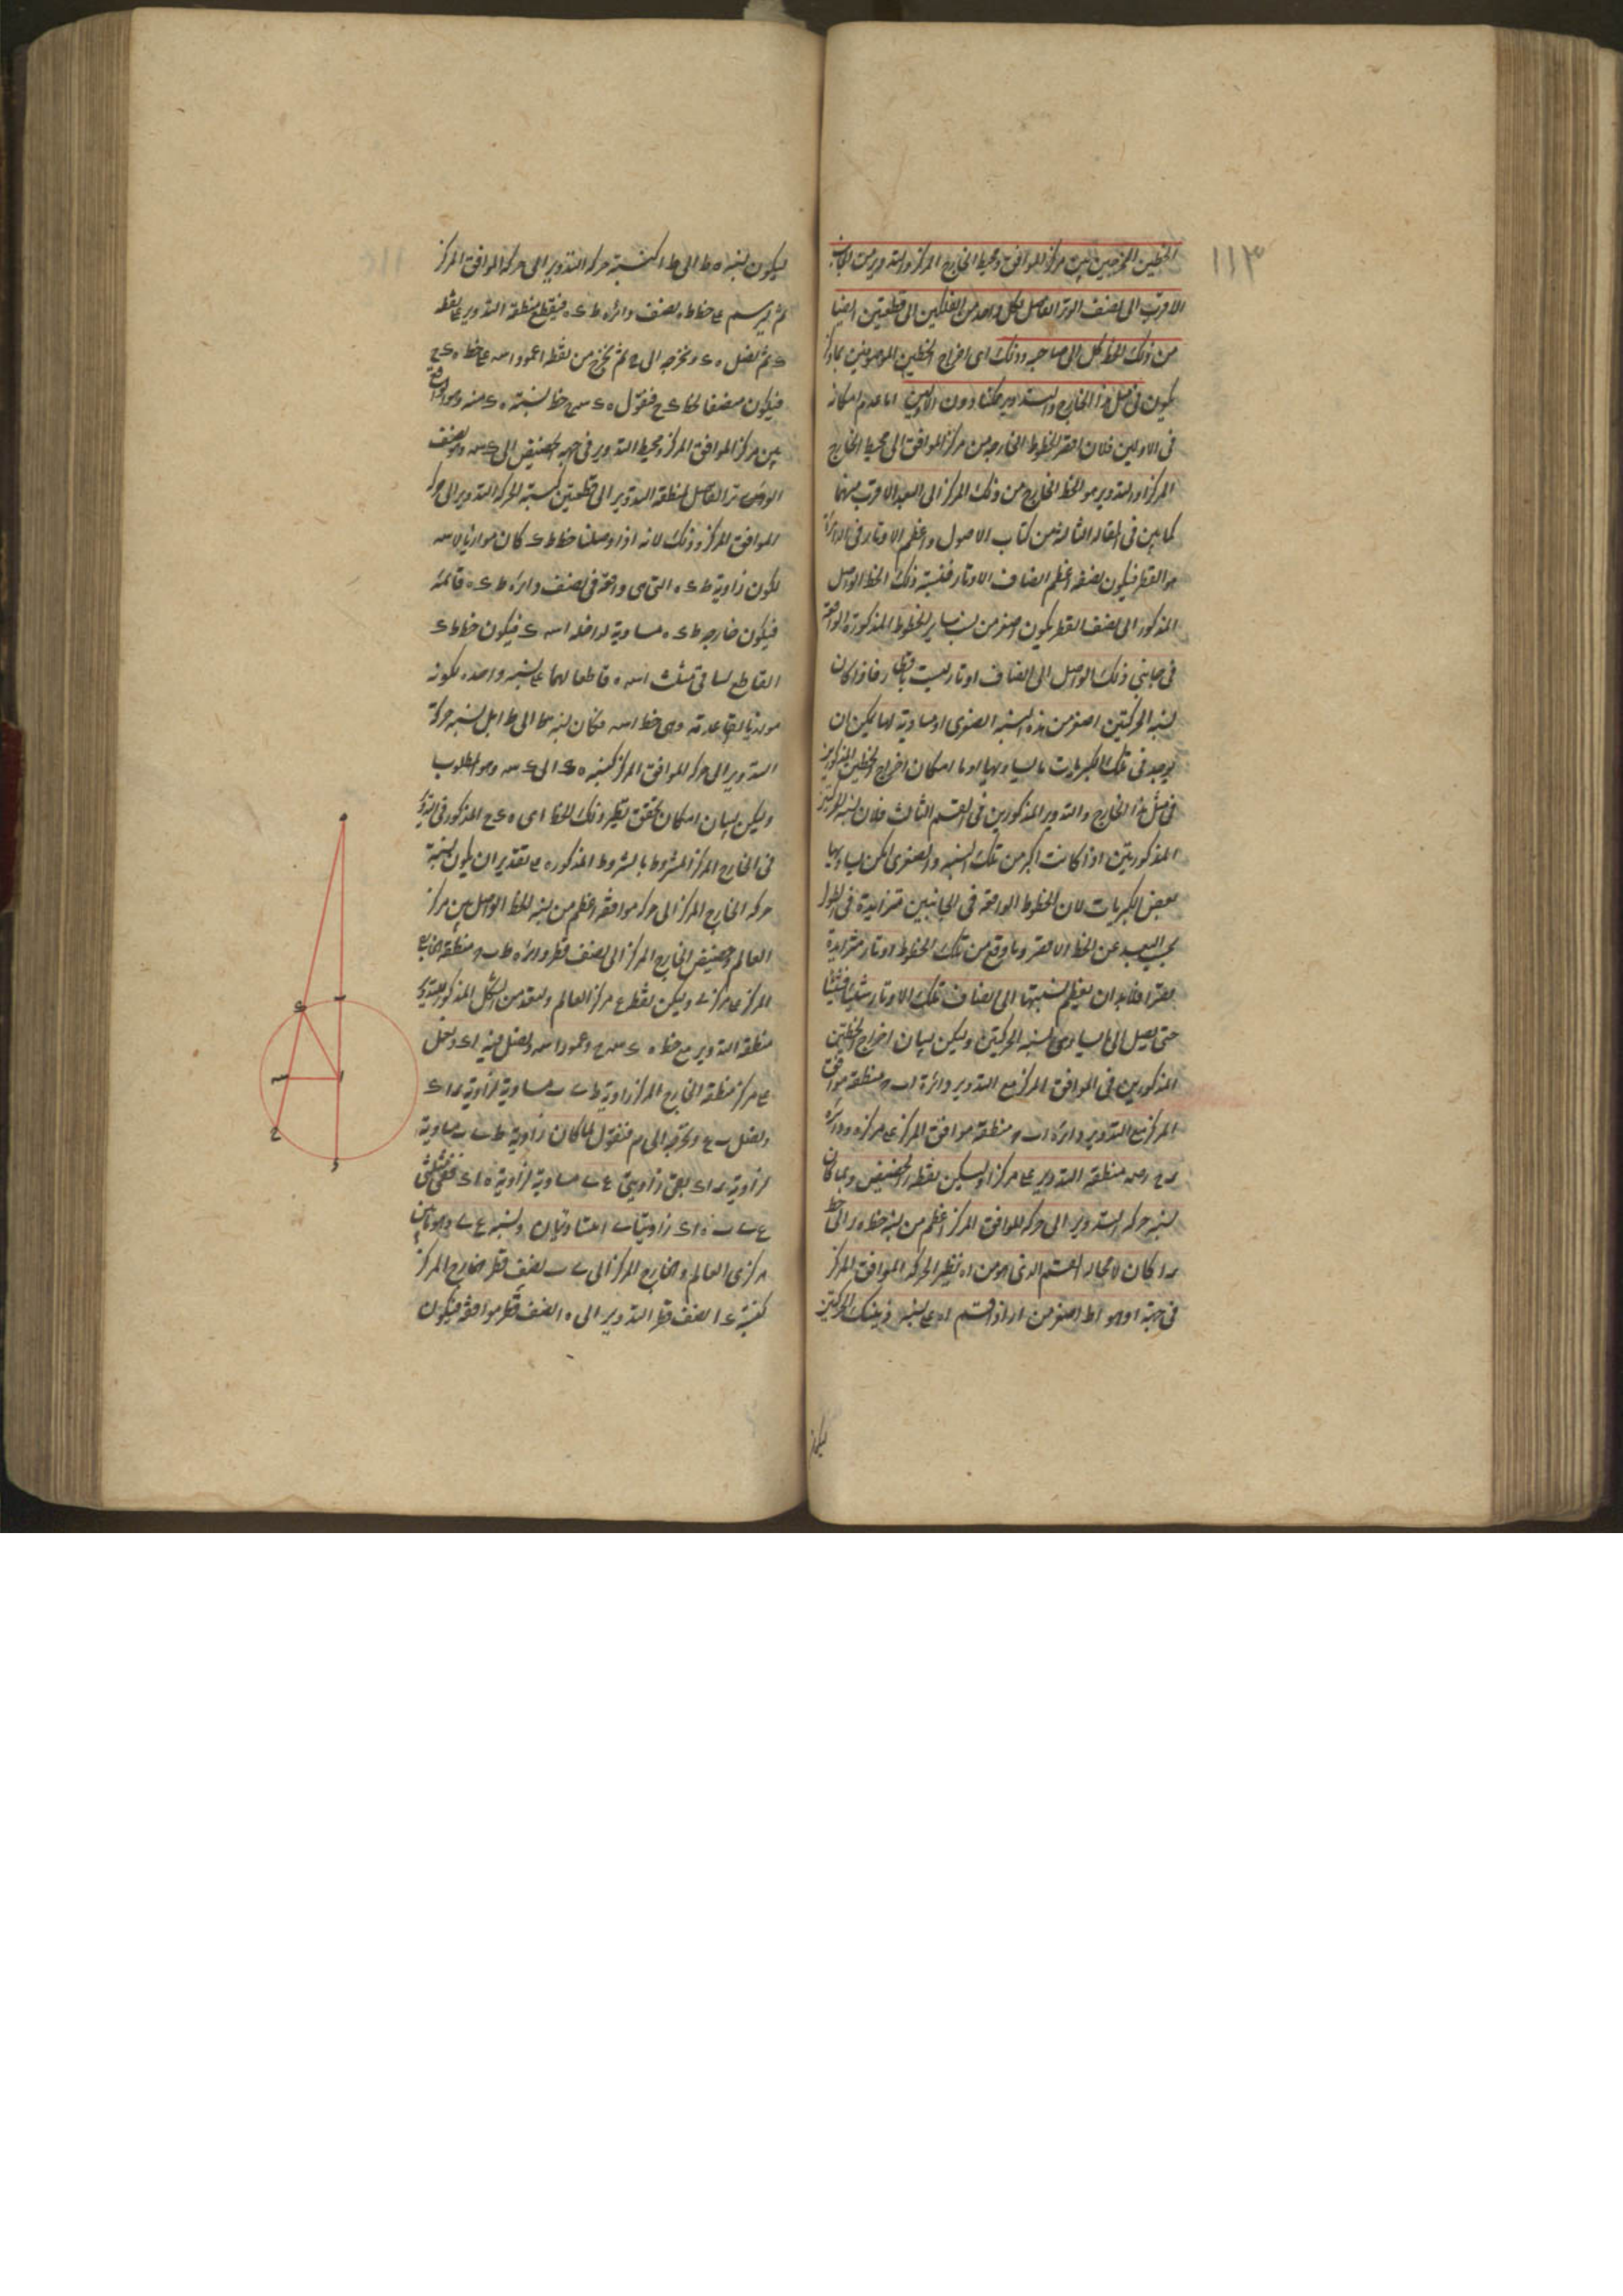 ١١٣
الخطين المخرجين من مركز الموافق ومحيط الخارج المركز والتدوير من الجانب
الاقرب الى نصف الوتر الفاصل لكل واحد من الفلكين الى قطعتين ايضا
من ذلك الخط كل الى صاحبه وذلك اى اخراج الخطين الموصوفين بما ذكر
يكون فى مثل هذا الخارج والتدوير ممكنا دون الاولين اما عدم امكانه
فى الاولين فلان اقصر الخطوط الخارجة من مركز الموافق الى محيط الخارج
المركز او التدوير هو الخط الخارج من ذلك المركز الى البعد الاقرب منهما
كما بين فى المقالة الثالثة من كتاب الاصول واعظم الاوتار فى الدائرة
هو القطر فيكون نصفه اعظم انصاف الاوتار فنسبة ذلك الخط الواصل
المذكور الى نصف القطر يكون اصغر من نسب سائر الخطوط المذكورة الواقعة
فى جانبى ذلك الواصل الى انصاف اوتار ليست باقطار فاذا كان
نسبة الحركتين اصغر من هذه النسبة الصغرى او مساوية لها لم يمكن ان
يوجد فى تلك الكبريات ما يساويها واما امكان اخراج الخطين المذكورين
فى مثل هذا الخارج والتدوير المذكورين فى القسم الثالث فلان نسبة الحركتين
المذكورتين اذا كانت اكبر من تلك النسبة والصغرى امكن يساويها
بعض الكبريات لان الخطوط الواقعة فى الجانبين متزايدة فى الطول
بحسب البعد عن الخط الاقصر وما وقع من تلك الخطوط اوتار متزايدة
قصرا فلا بد ان يعظم نسبتها الى انصاف تلك الاوتار شيئا فشيئا
حتى يصل الى ما يساوى نسبة الحركتين وليكن لبيان اخراج الخطين
المذكورين فى الموافق المركز مع التدوير دائرة ا ب ح منطقة موافق
المركز مع التدوير دائرة ا ب ح منطقة موافق المركز على مركز ه ودائرة
ر ح د س منطقة التدوير على مركز ا وليكن نقطة ر الحضيض ولما كان
نسبة حركة التدوير الى حركة الموافق المركز اعظم من نسبة خط ه ر الى خط
ر ا كان لا محالة القسم الذى هو من ا ه نظير الحركة الموافق المركز
فى جهة ا وهو ا ط اصغر من ا ر اذا قسم ا ه على نسبة ذينك الحركتين
ليكون
ليكون نسبة ه ط الى ط ا كنسبة حركة التدوير الى حركة الموافق المركز
ثم ليرسم على خط ط ه نصف دائرة ط د ه فيقطع منطقة التدوير على نقطة
د ثم نصل ه د ونخرجه الى ح ثم نخرج من نقطة ا عمود ا س على خط ه د ح
فيكون منصفا لخط د ح فنقول ه د س ح خط نسبة ه د منه وهو الواقع
بين مركز الموافق المركز ومحيط التدوير فى جهة الحضيض الى د س وهو نصف
الوتر الفاصل لمنطقة التدوير الى قطعتين كنسبة حركة التدوير الى حركة
الموافق المركز وذلك لانه اذا وصلنا خط ط د كان موازيا لا س
لكون زاوية ط د ه التى هى واقعة فى نصف دائرة ط د ه قائمة
فيكون خارجة ط د ه مساوية لداخلة ا س د فيكون خط ط د
القاطع لساقى مثلث ا س ه قاطعا لهما على نسبة واحدة لكونه
موازيا لقاعدته وهى خط ا س فكان نسبة ه ط الى ط ا بل نسبة حركة
التدوير الى حركة الموافق المركز كنسبة ه د الى د س وهو المطلوب
وليكن لبيان امكان تحقق نظير ذلك الخط اى ه د ح المذكور فى التدوير
فى الخارج المركز المشروط بالشروط المذكورة على تقدير ان يكون نسبة
حركة الخارج المركز الى حركة موافقه اعظم من نسبة الخط الواصل بين مركز
العالم وحضيض الخارج المركز الى نصف قطر دائرة ط ب ح منطقة الخارج
المركز على مركز ے وليكن نقطة ع مركز العالم ولنعد من الشكل المذكور للتدوير
منطقة التدوير مع خط ه د س ح وعمود ا س ونصل فيه ا د ونعمل
على مركز منطقة الخارج المركز زاوية ط ے ب مساوية لزاوية ر ا د
ونصل ب ع ونخرجه الى م فنقول لما كان زاوية ط ے ب مساوية
لزاوية ر ا د بقى زاويتى ع ے مساوية لزاوية ه ا د ففى مثلثى
ع ے ب ه ا د زاويتا ے ا متساويتان ونسبة ع ے وهو ما بين
مركزى العالم والخارج المركز الى ے ب نصف قطر الخارج المركز
كنسبة د ا نصف قطر التدوير الى ه ا نصف قطر موافقه فيكون
ه
د
ب
س
ا
ح
ر